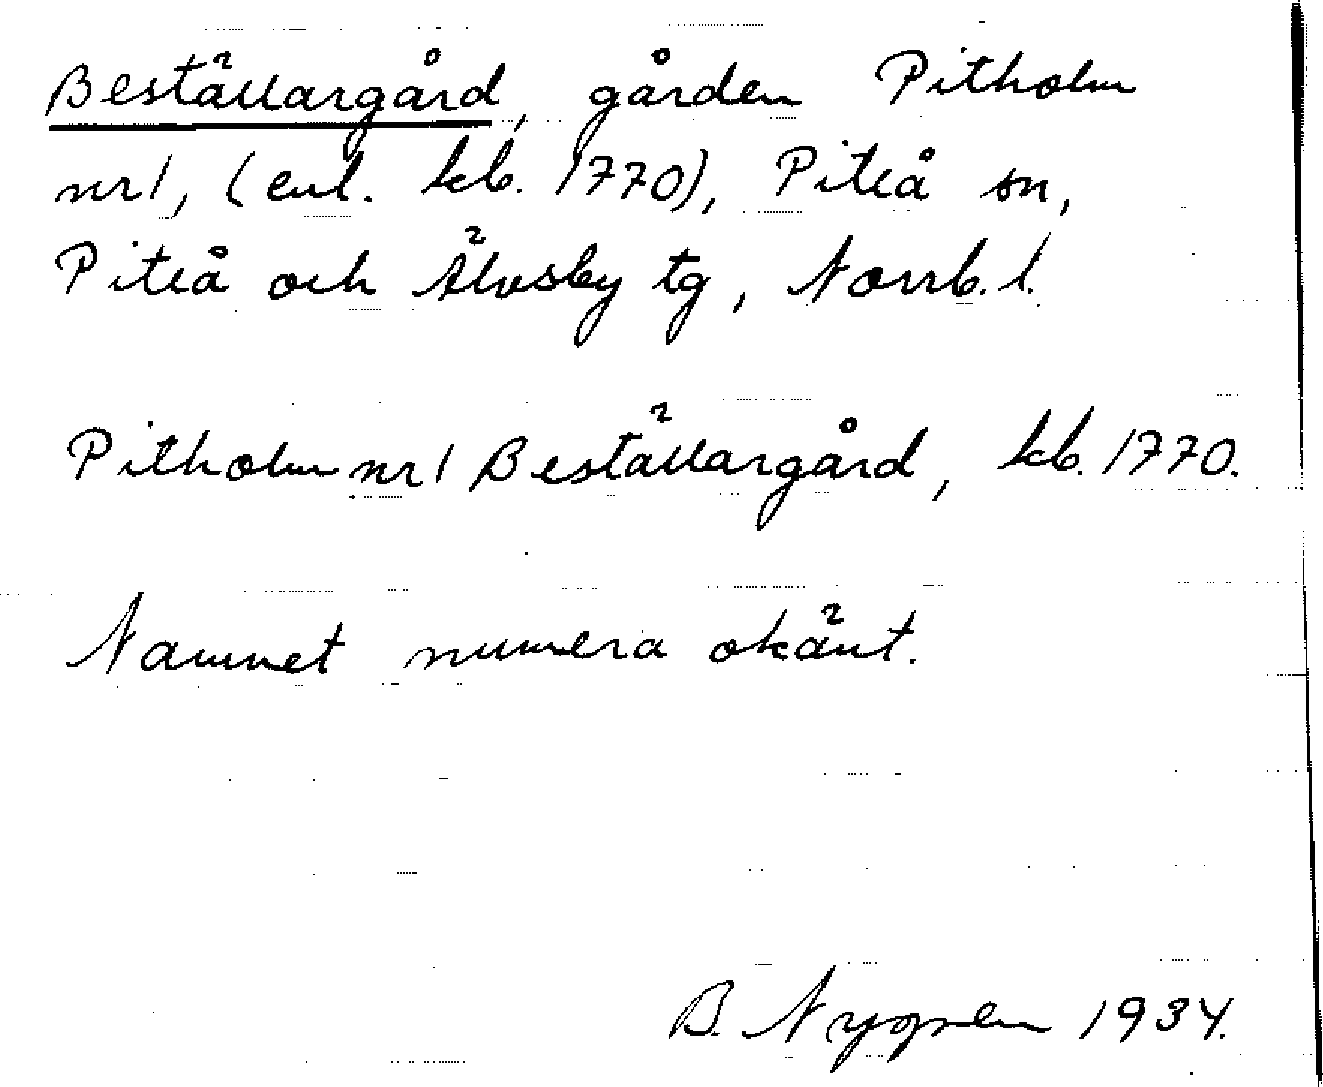 Beställargård, gården Pitholm
nr 1, (enl. kb. 1770), Piteå sn,
Piteå och Älvsby tg, Norrb. l.
Pitholm nr 1 Beställargård, kb. 1770.
Namnet numera okänt.
B. Nygren 1934.